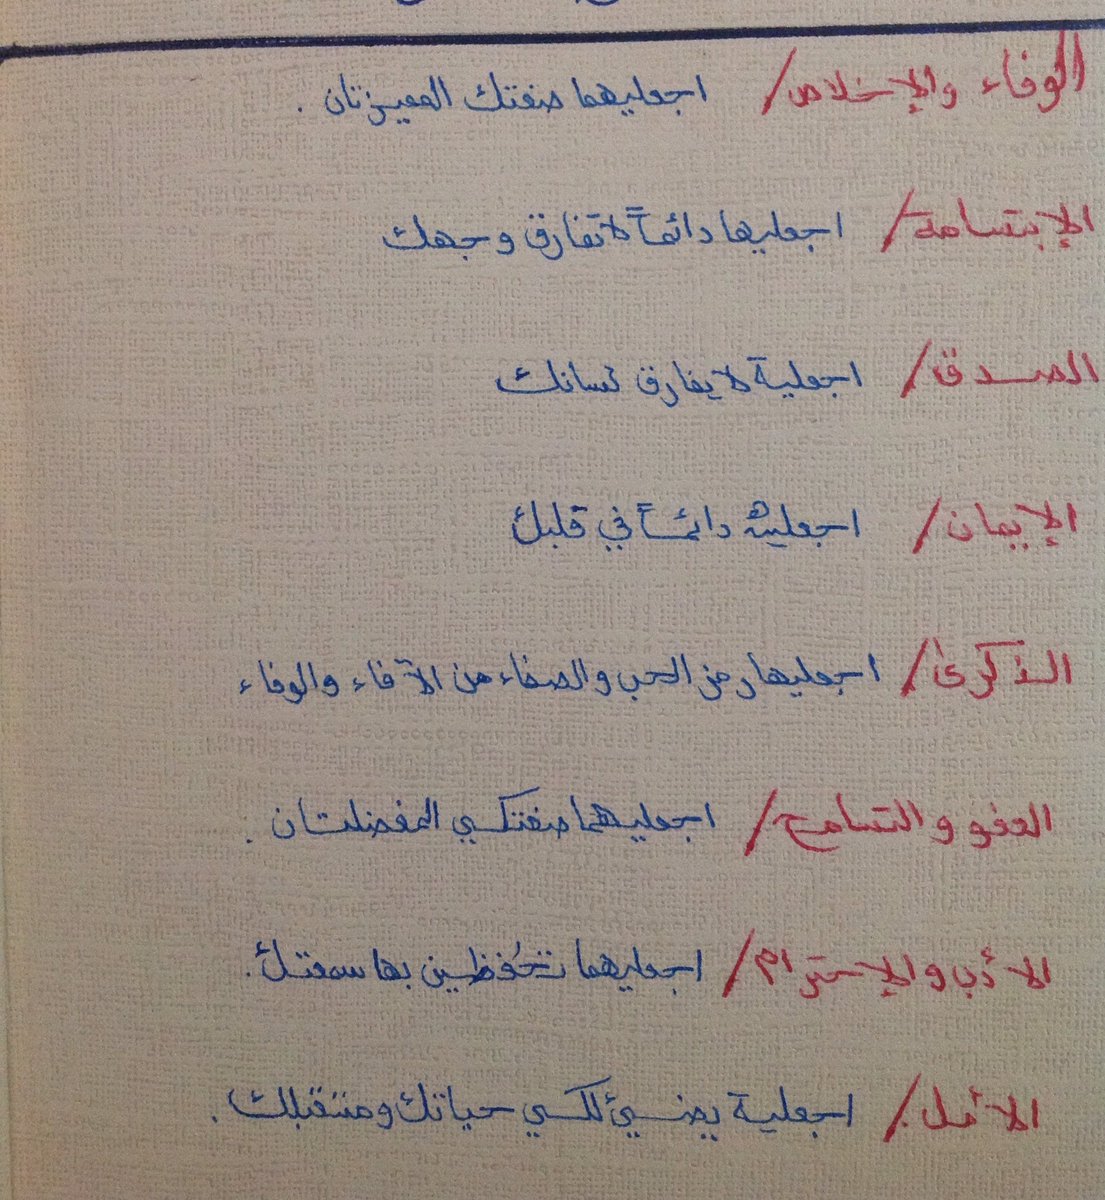 الوفاء والإخلاص/ اجعليهما صفتك المميزتان .
الإبتسامة/ اجعليها دائماً لا تفارق وجهك
الصدق/ اجعلية لا يفارق لسانك
الإيمان/ اجعليه دائماً في قلبك
الذكرى/ اجعليها رمز الحب والصفاء من الآفاء والوفاء
العفو والتسامح/ اجعليهما صفتكي المفضلتان .
الأدب والإحترام/ اجعليهما تحفظين بها سمعتك .
الأمل/ اجعلية يضيئ لكي حياتك ومتقبلك .